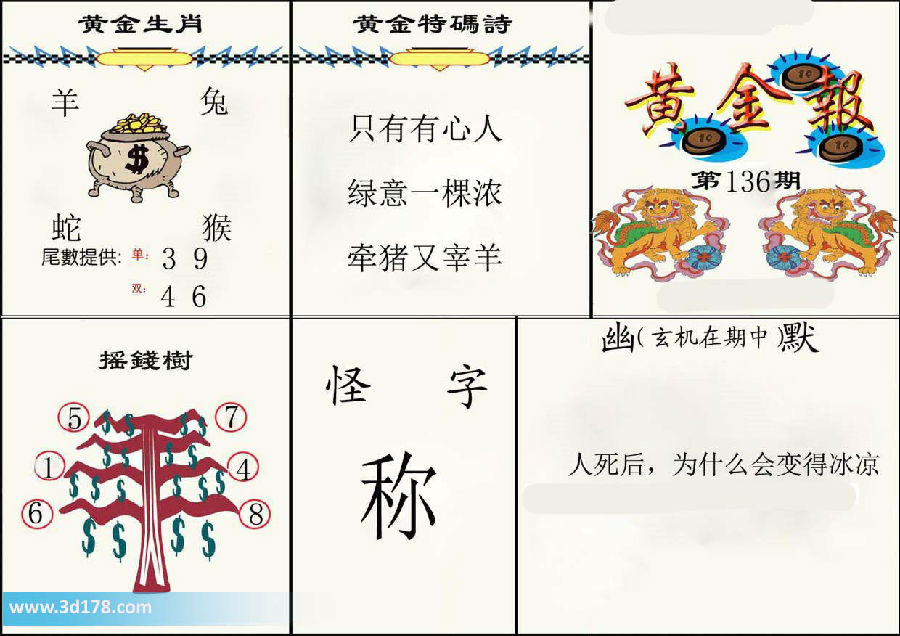 黄金生肖
羊 兔
$
蛇 猴
尾數提供: 单: 3 9
双: 4 6
黄金特碼詩
只有有心人
绿意一棵浓
牵猪又宰羊
黄金報
第136期
摇錢樹
5 7
1 4
6 8
怪 字
称
幽(玄机在期中)默
人死后，为什么会变得冰凉
www.3d178.com